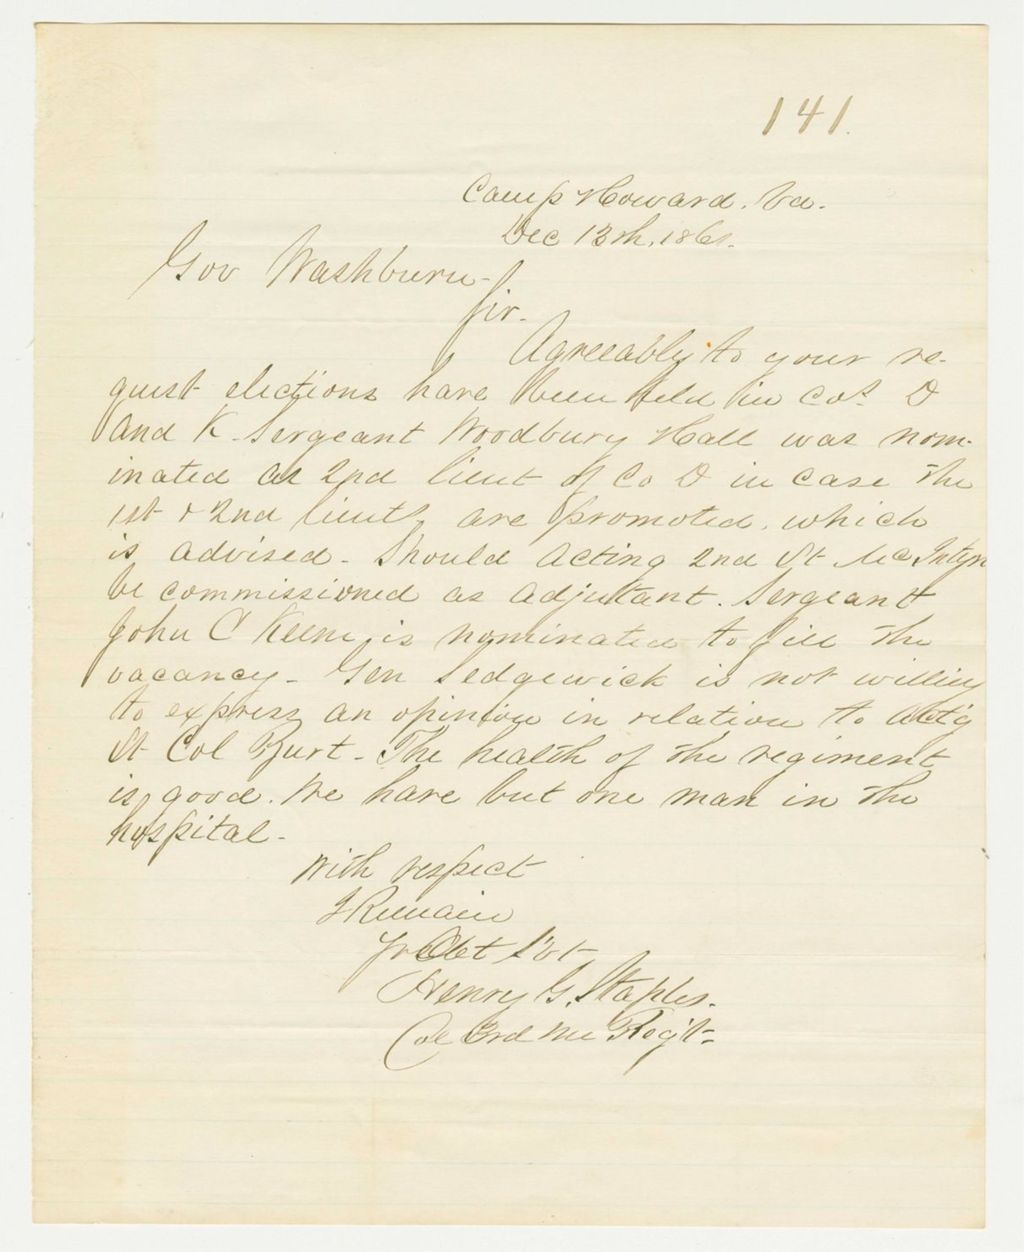 141.
Camp Howard. Va.
Dec 13th, 1861.
Gov Washburn-
Sir-
Agreeably to your re-
quest elections have been held in Cos. D
and K. Sergeant Woodbury Hall was nom-
inated as 2nd lieut of Co D in case the
1st & 2nd lieuts are promoted, which
is advised - Should acting 2nd Lt McIntyre
be commissioned as adjutant. Sergeant
John C Keene, is nominated to fill the
vacancy - Gen Sedgewick is not willing
to express an opinion in relation to act'g
Lt Col Burt - The health of the regiment
is good. We have but one man in the
hospital-
With respect
I Remain
Yr Obt Svt-
Henry G. Staples.
Col 3rd Me Reg't-